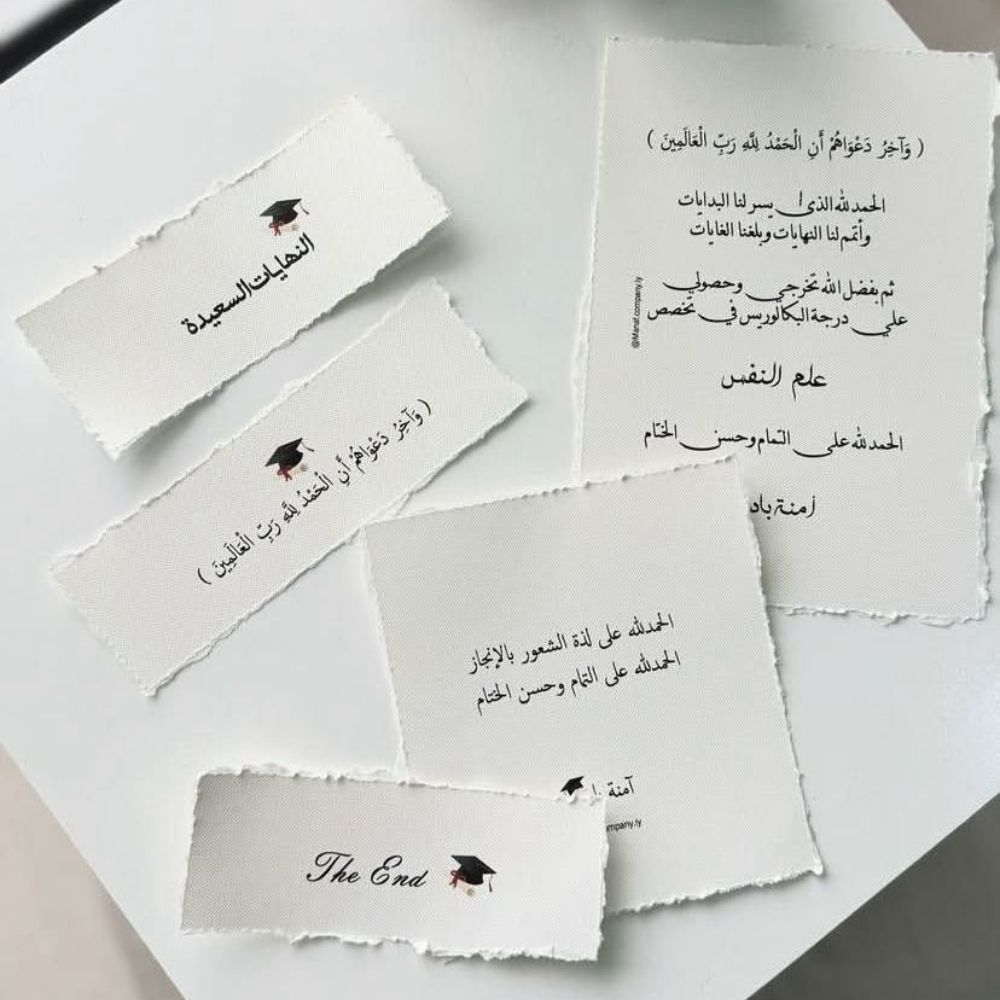 النهايات السعيدة
( وَآخِرُ دَعْوَاهُمْ أَنِ الْحَمْدُ لِلَّهِ رَبِّ الْعَالَمِينَ )
( وَآخِرُ دَعْوَاهُمْ أَنِ الْحَمْدُ لِلَّهِ رَبِّ الْعَالَمِينَ )
الحمدلله الذي يسر لنا البدايات
وأتمم لنا النهايات وبلغنا الغايات
ثم بفضل الله تخرجي وحصولي
علي درجة البكالوريس في تخصص
علم النفس
الحمدلله على التمام وحسن الختام
آمنة
@Manaf.company.ly
الحمدلله على لذة الشعور بالإنجاز
الحمدلله على التمام وحسن الختام
آمنة
The End